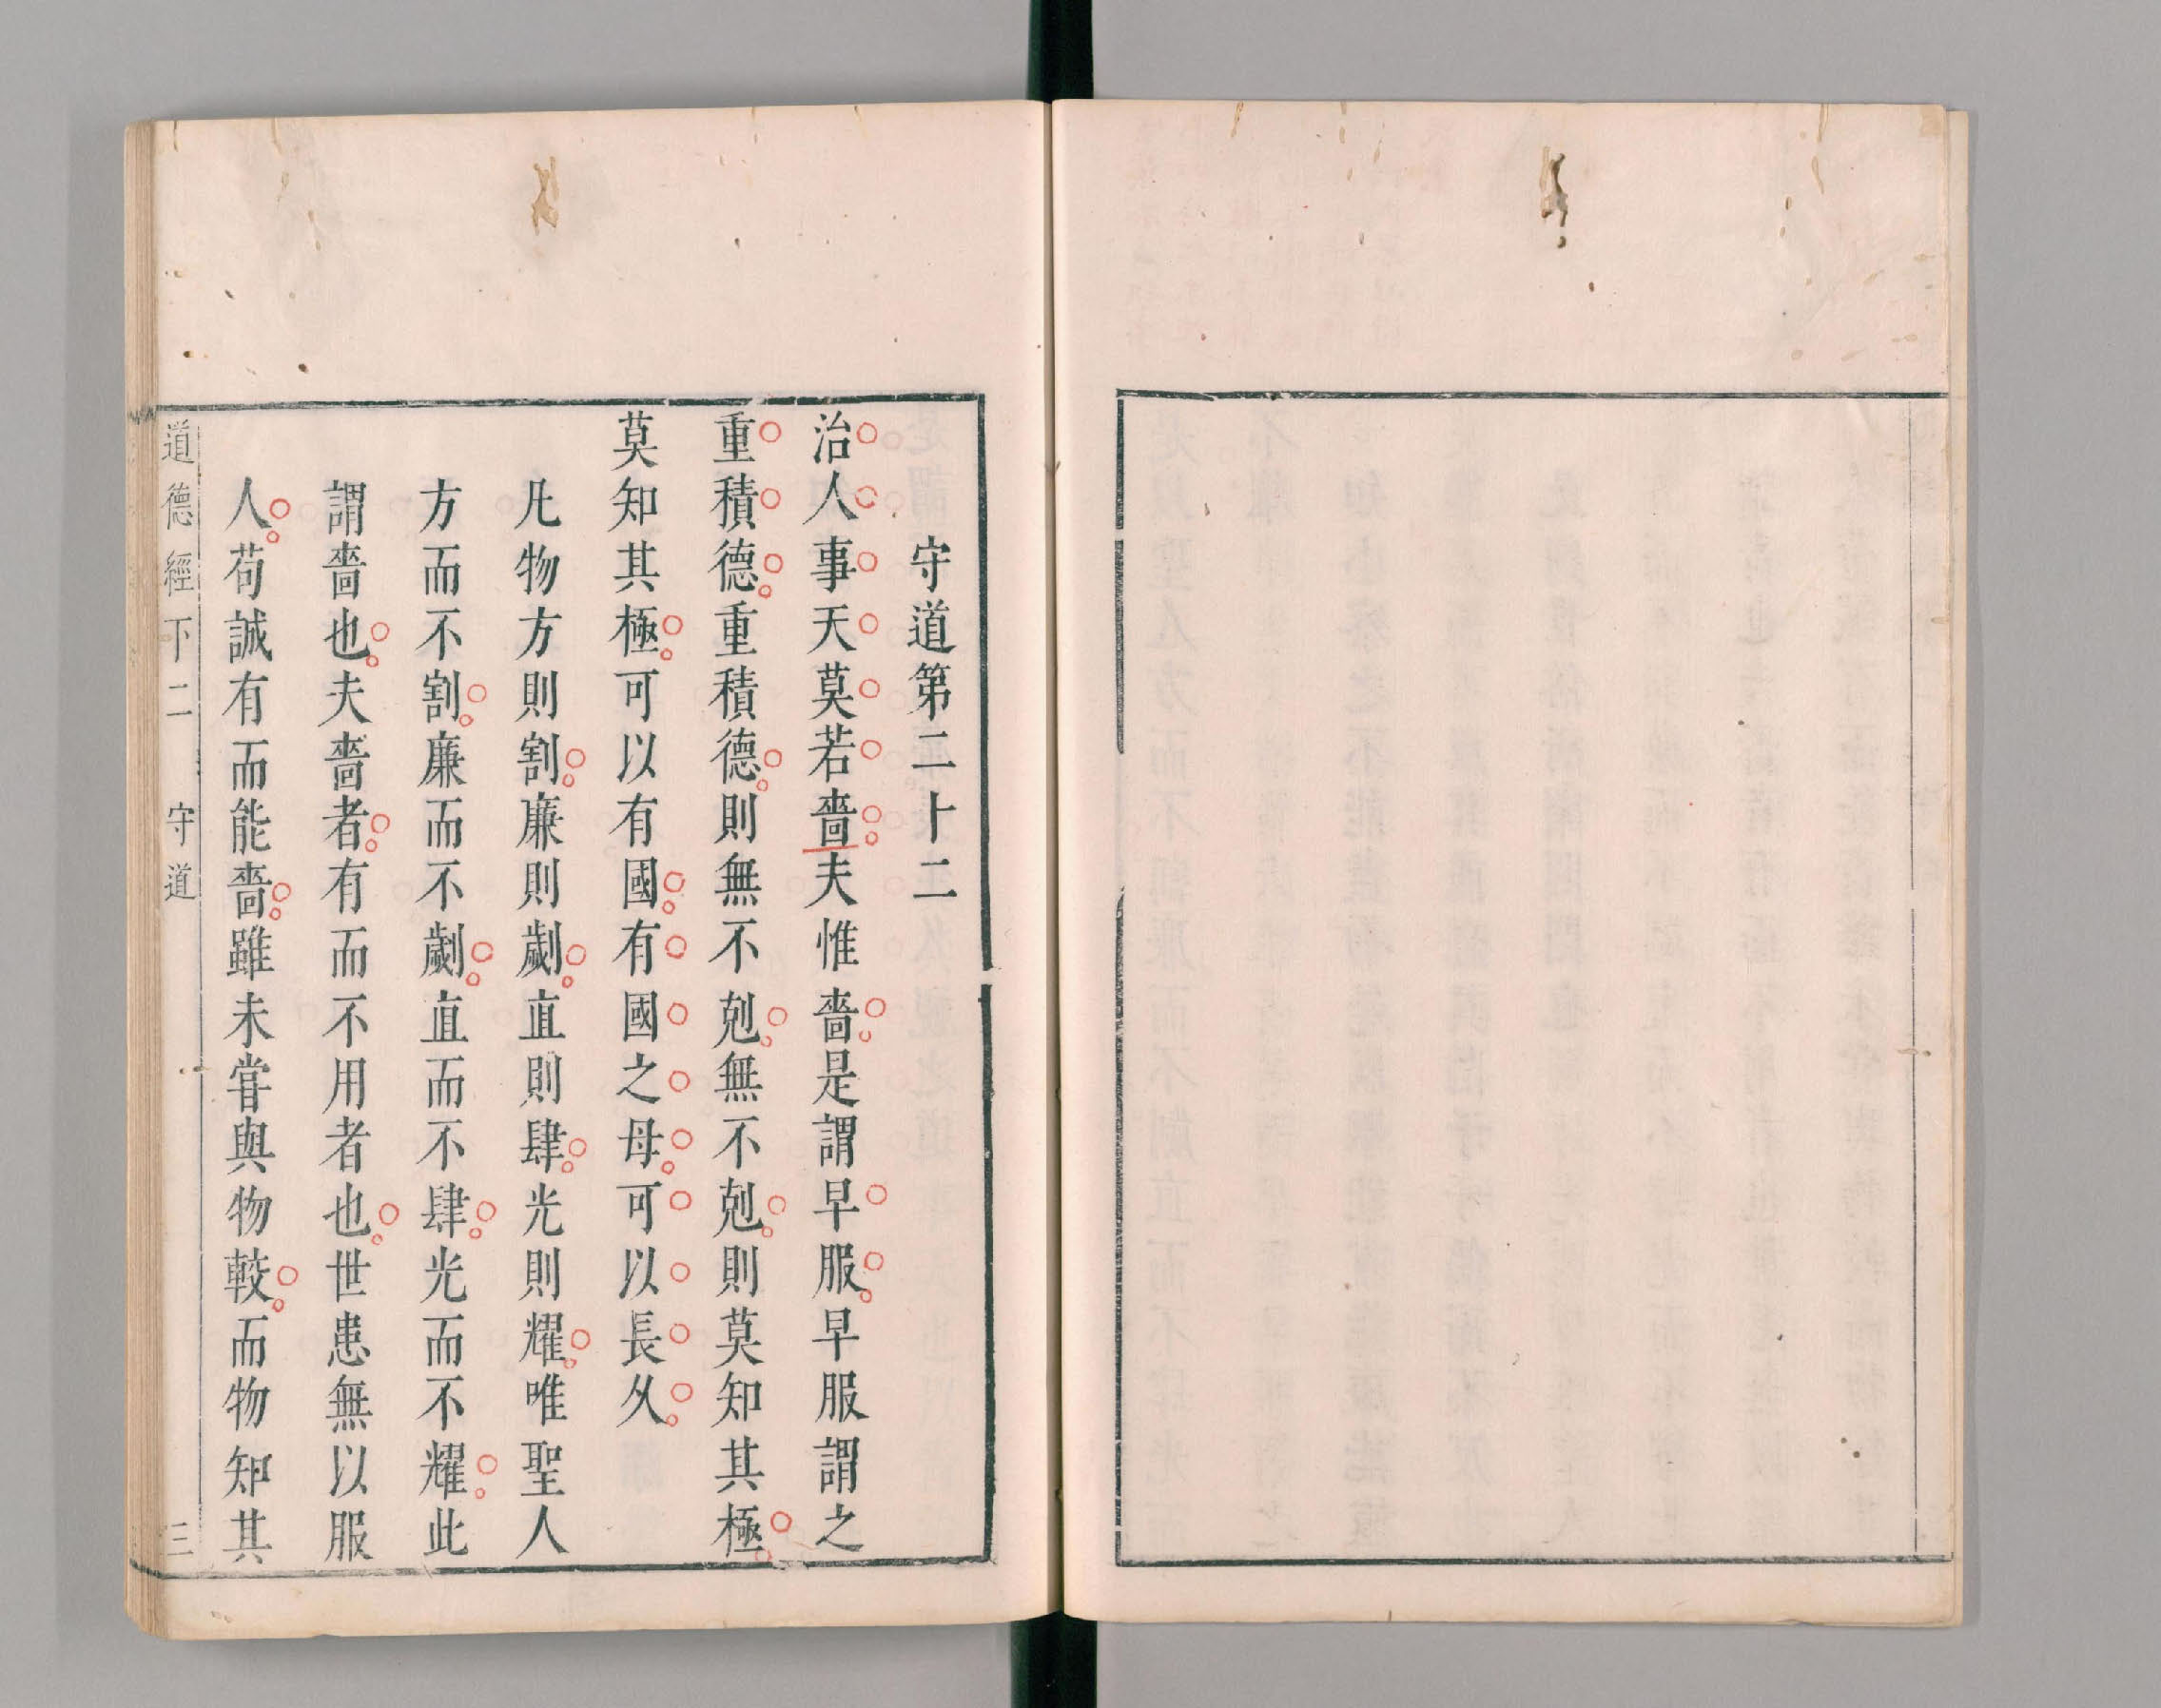 守道第二十二
治人事天莫若嗇夫惟嗇是謂早服早服謂之
重積德重積德則無不剋無不剋則莫知其極
莫知其極可以有國有國之母可以長久
凡物方則割廉則劌直則肆光則耀唯聖人
方而不割廉而不劌直而不肆光而不耀此
謂嗇也夫嗇者有而不用者也世患無以服
人苟誠有而能嗇雖未嘗與物較而物知其
道德經下二 守道 三